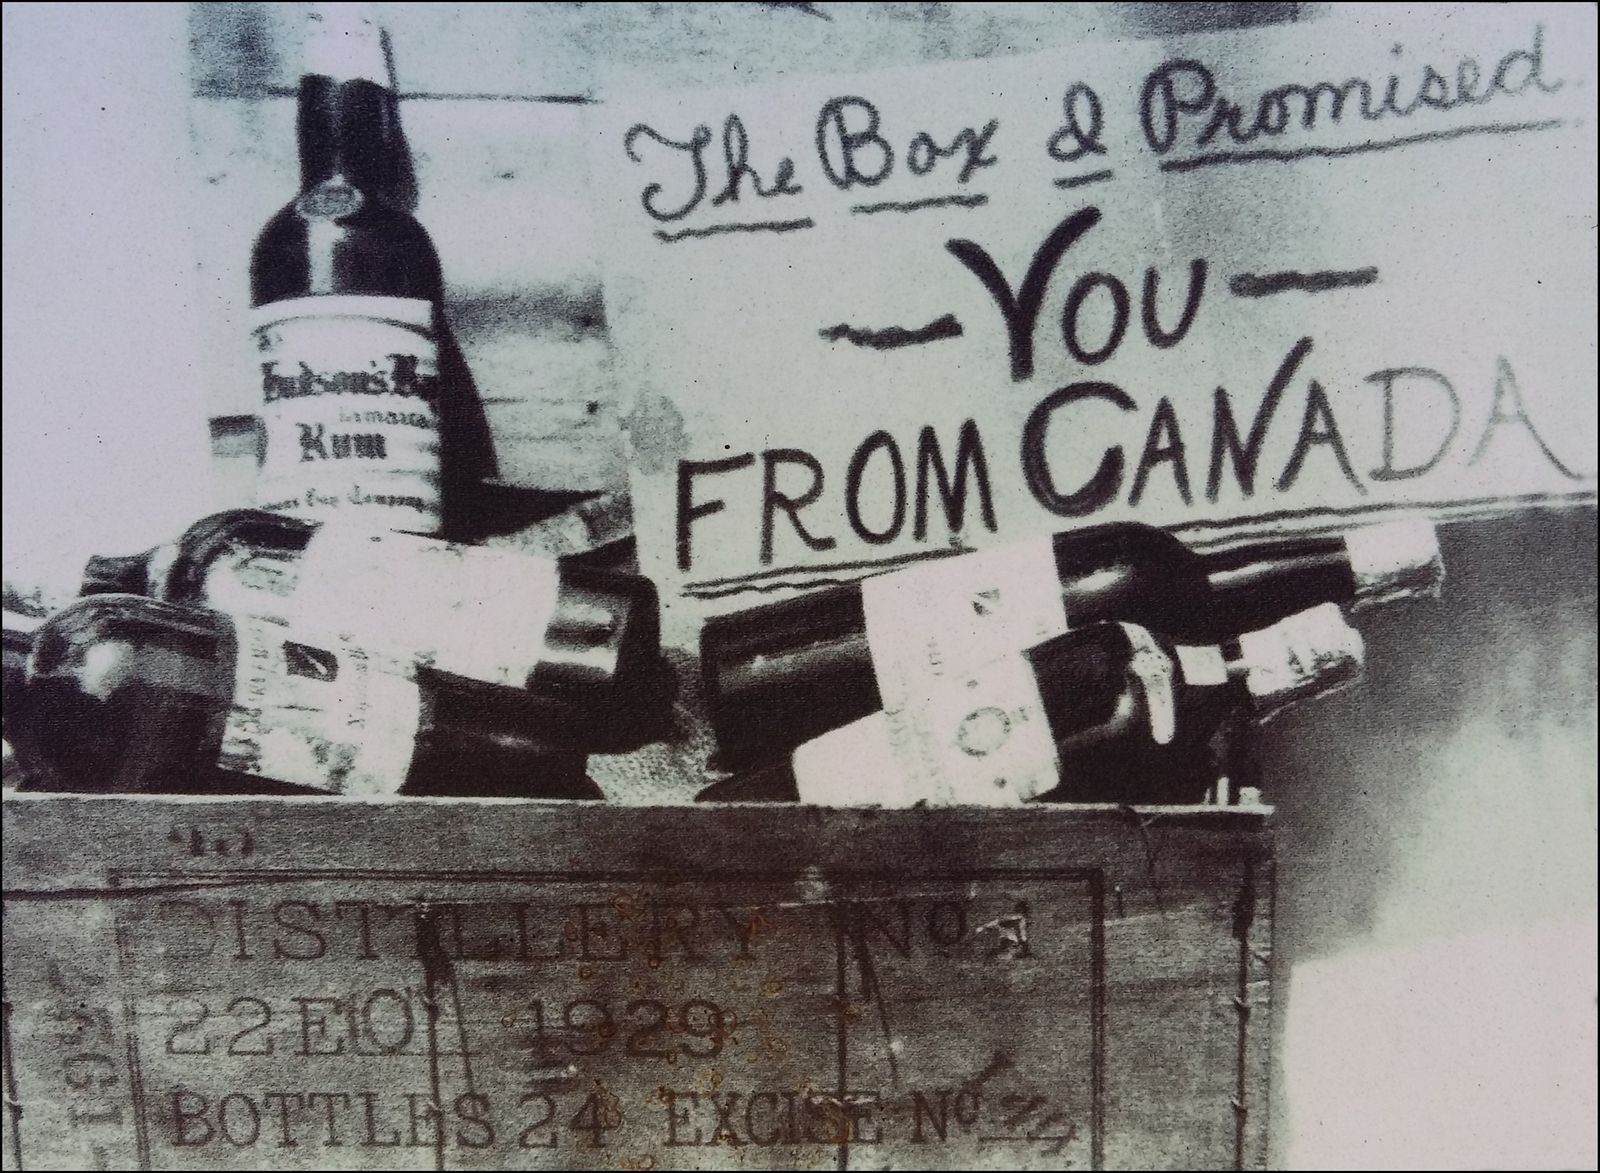 The Box I Promised
- YOU -
FROM CANADA
Hudson's Ba
Jamaica
Rum
Company
DISTILLERY No 1
22 EO 1929
BOTTLES 24 EXCISE No